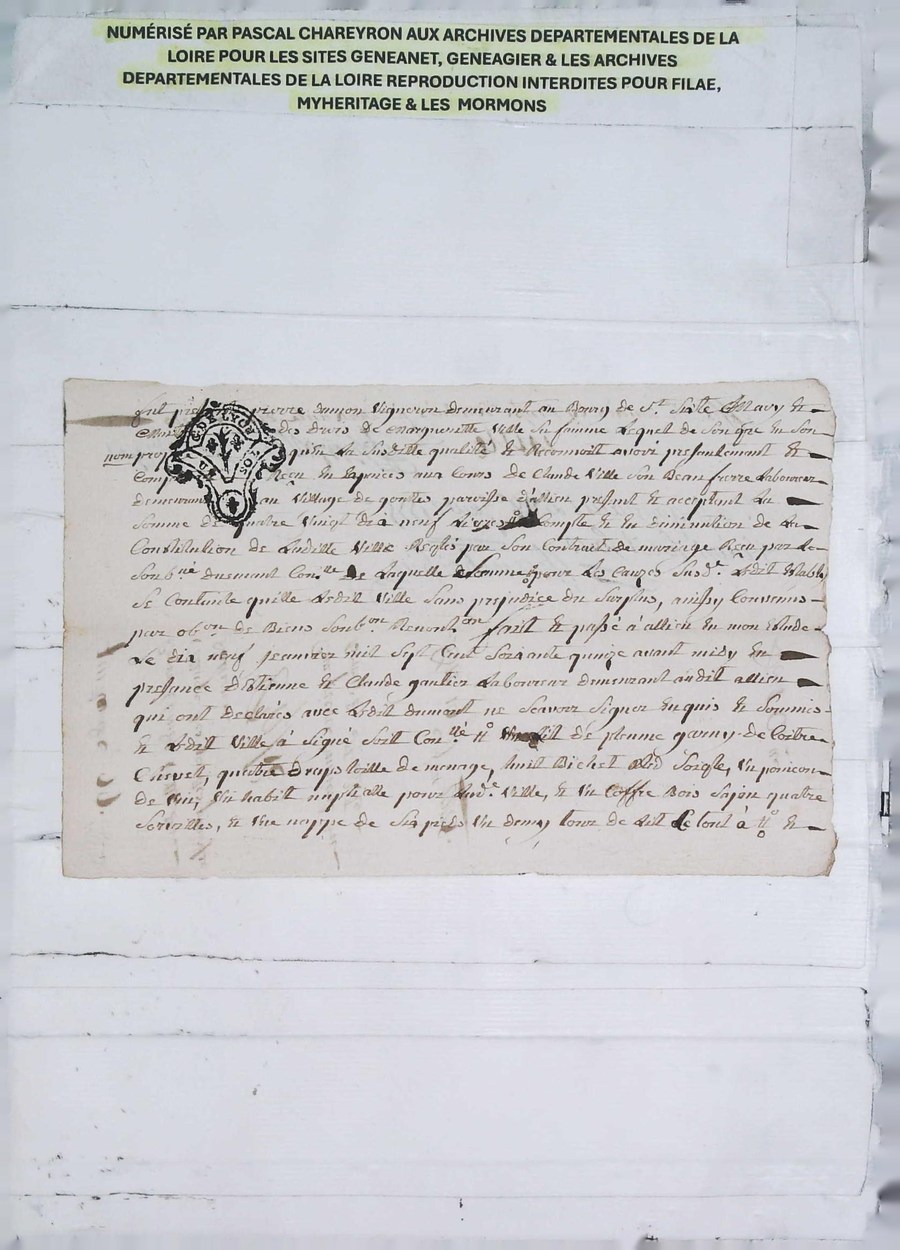 NUMÉRISÉ PAR PASCAL CHAREYRON AUX ARCHIVES DEPARTEMENTALES DE LA
LOIRE POUR LES SITES GENEANET, GENEAGIER & LES ARCHIVES
DEPARTEMENTALES DE LA LOIRE REPRODUCTION INTERDITES POUR FILAE,
MYHERITAGE & LES MORMONS
fut present pierre dumon Vigneron demeurant au Bourg de St Sixte Mary &
des droes de Margueritte Ville sa femme Lequel de Son gre en Son
nom qu'en La Susditte qualitté & Reconnoit avoir presentement &
Reçu en Espèces aux Cours de Claude Ville Son Beau frere Laboureur
demeurant au Village de gouttes parroisse dallieu present & acceptant La
Somme de quatre Vingt dix neuf Livres Compte & en diminution de La
Constitution de Laditte Ville Reglés par Son Contrait de mariage Reçu par Le
Sonbné dusmant Conlle De Laquelle Somme pour Les Causes Susd. Ledit
Se Contente quitte Ledit Ville Sans prejudice du Surplus, ainssy Convenus
par obon de Biens Soubon Renonton fait & passé à allieu en mon Etude
Le dix neuf Jeanvier mil Sept Cent Soixante quinze avant midy En
presance d'Etienne & Claude gaulier Laboureur demeurant audit allieu
qui ont declarés avec Ledit dumont ne Scavoir Signer Enquis & Sommes
& Ledit Ville à Signé Soit Conllé de plume garny de Coitre
Chevet, quatre draps toille de menage, huit Bichet Bled Soigle, Un poincon
de Vin, Un habit nuptialle pour Lade Ville, & Un Coffre Bois Sapin quatre
Serviettes, & Une nappe de Six pieds Un demy tour de Lit Le tout à &
G. DE LYON
SOL